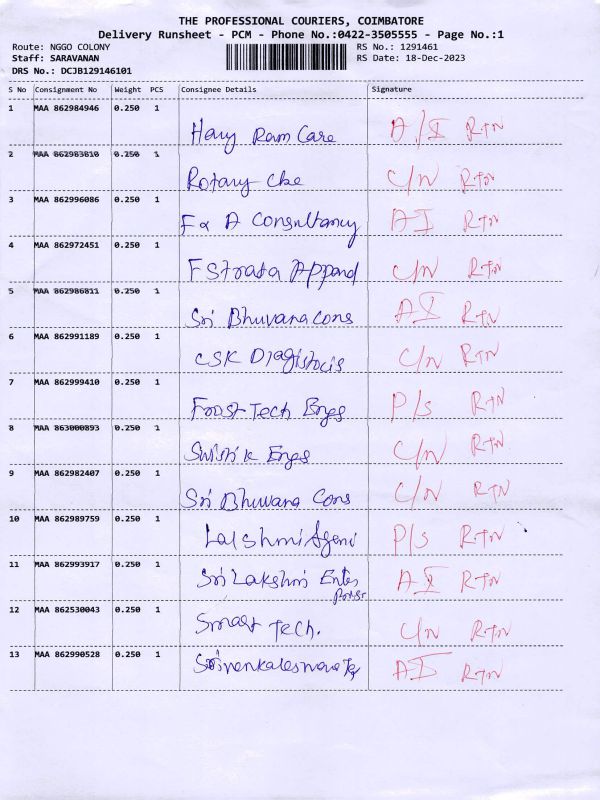 THE PROFESSIONAL COURIERS, COIMBATORE
Delivery Runsheet - PCM - Phone No.:0422-3505555 - Page No.:1
Route: NGGO COLONY
RS No.: 1291461
Staff: SARAVANAN
RS Date: 18-Dec-2023
DRS No.: DCJB129146101
S No Consignment No Weight PCS Consignee Details Signature
1 MAA 862984946 0.250 1
Hary Ram Care A/I RTN
2 MAA 862983810 0.250 1
Rotary Cbe C/N RTN
3 MAA 862996086 0.250 1
F & A Consultancy AI RTN
4 MAA 862972451 0.250 1
FStrata Appand C/N RTN
5 MAA 862986811 0.250 1
Sri Bhuvana Cons AI RTN
6 MAA 862991189 0.250 1
CSK Diagistocis C/N RTN
7 MAA 862999410 0.250 1
Froost Tech Enges P/S RTN
8 MAA 863000893 0.250 1
Enges C/N RTN
9 MAA 862982407 0.250 1
Sri Bhuvana Cons C/N RTN
10 MAA 862989759 0.250 1
Lakshmi Ageni P/S RTN
11 MAA 862993917 0.250 1
Sri Lakshmi Enter
AI RTN
12 MAA 862530043 0.250 1
Smart Tech. C/N RTN
13 MAA 862990528 0.250 1
AI RTN